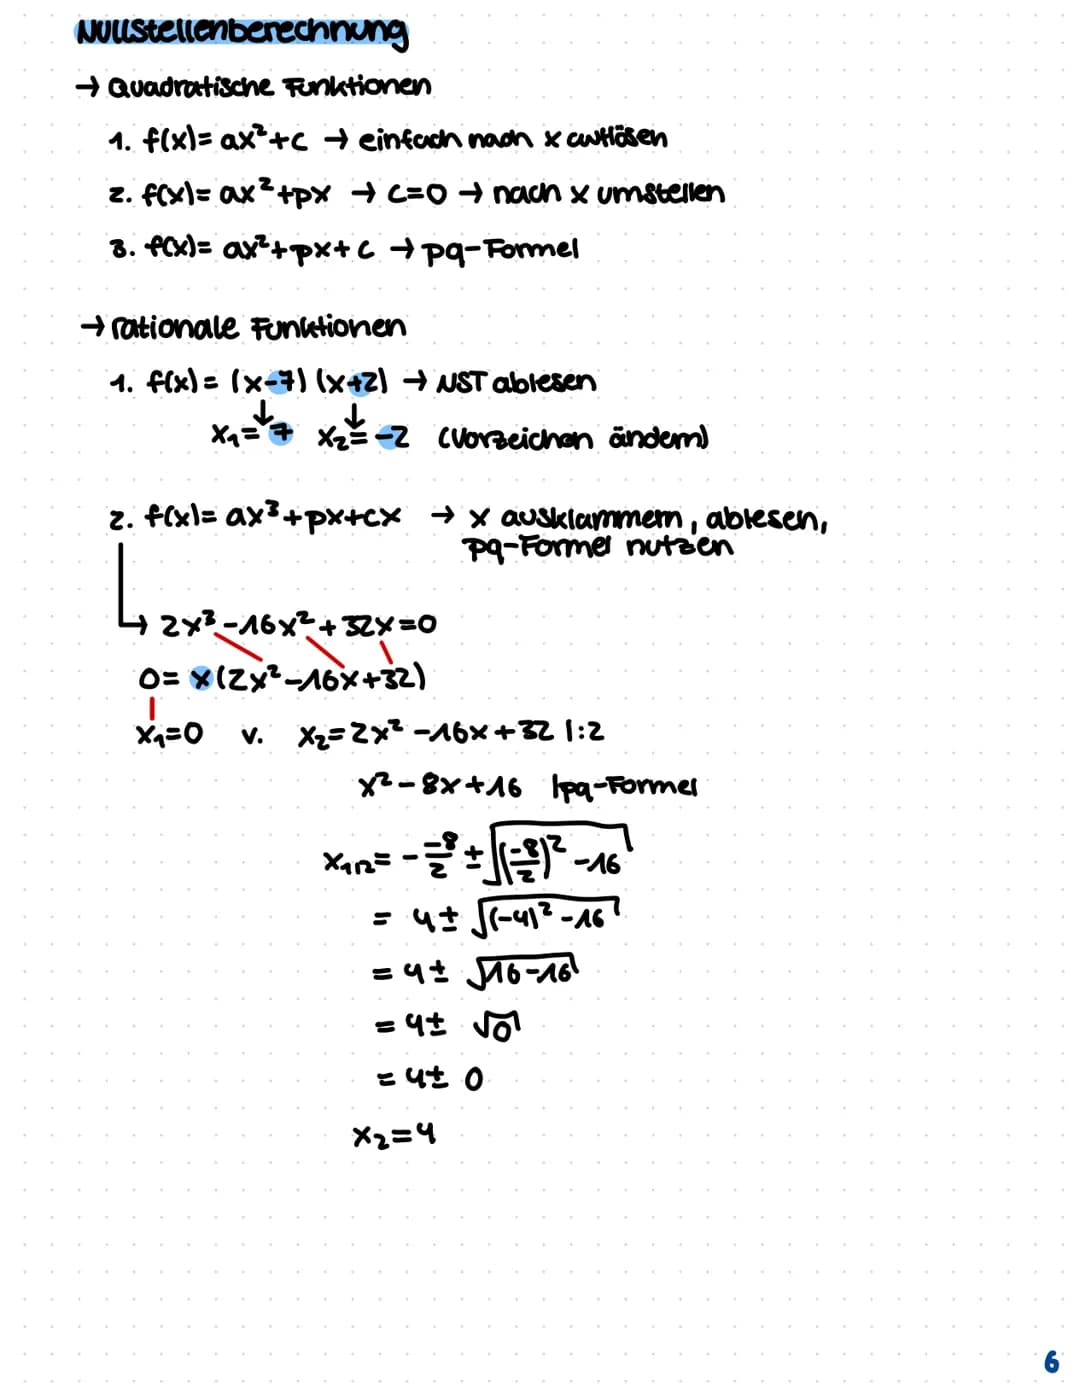 Nullstellenberechnung
→ Quadratische Funktionen
1. f(x)= ax²+c → einfach nach x auflösen
2. f(x)= ax²+px → c=0 → nach x umstellen
3. f(x)= ax²+px+c → pq-Formel
→ rationale Funktionen
1. f(x)= (x-7) (x+2) → NST ablesen
x₁= 7 x₂= -2 (Vorzeichen ändern)
2. f(x)= ax³+px+cx → x ausklammern, ablesen,
pq-Formel nutzen
↳ 2x³-16x²+32x=0
0= x(2x²-16x+32)
x₁=0 v. x₂=2x²-16x+32 |:2
x²-8x+16 |pq-Formel
x₁,₂= - -8/2 ± √((-8/2)²-16)
= 4± √((-4)²-16)
= 4± √(16-16)
= 4± √0
= 4± 0
x₂=4
6